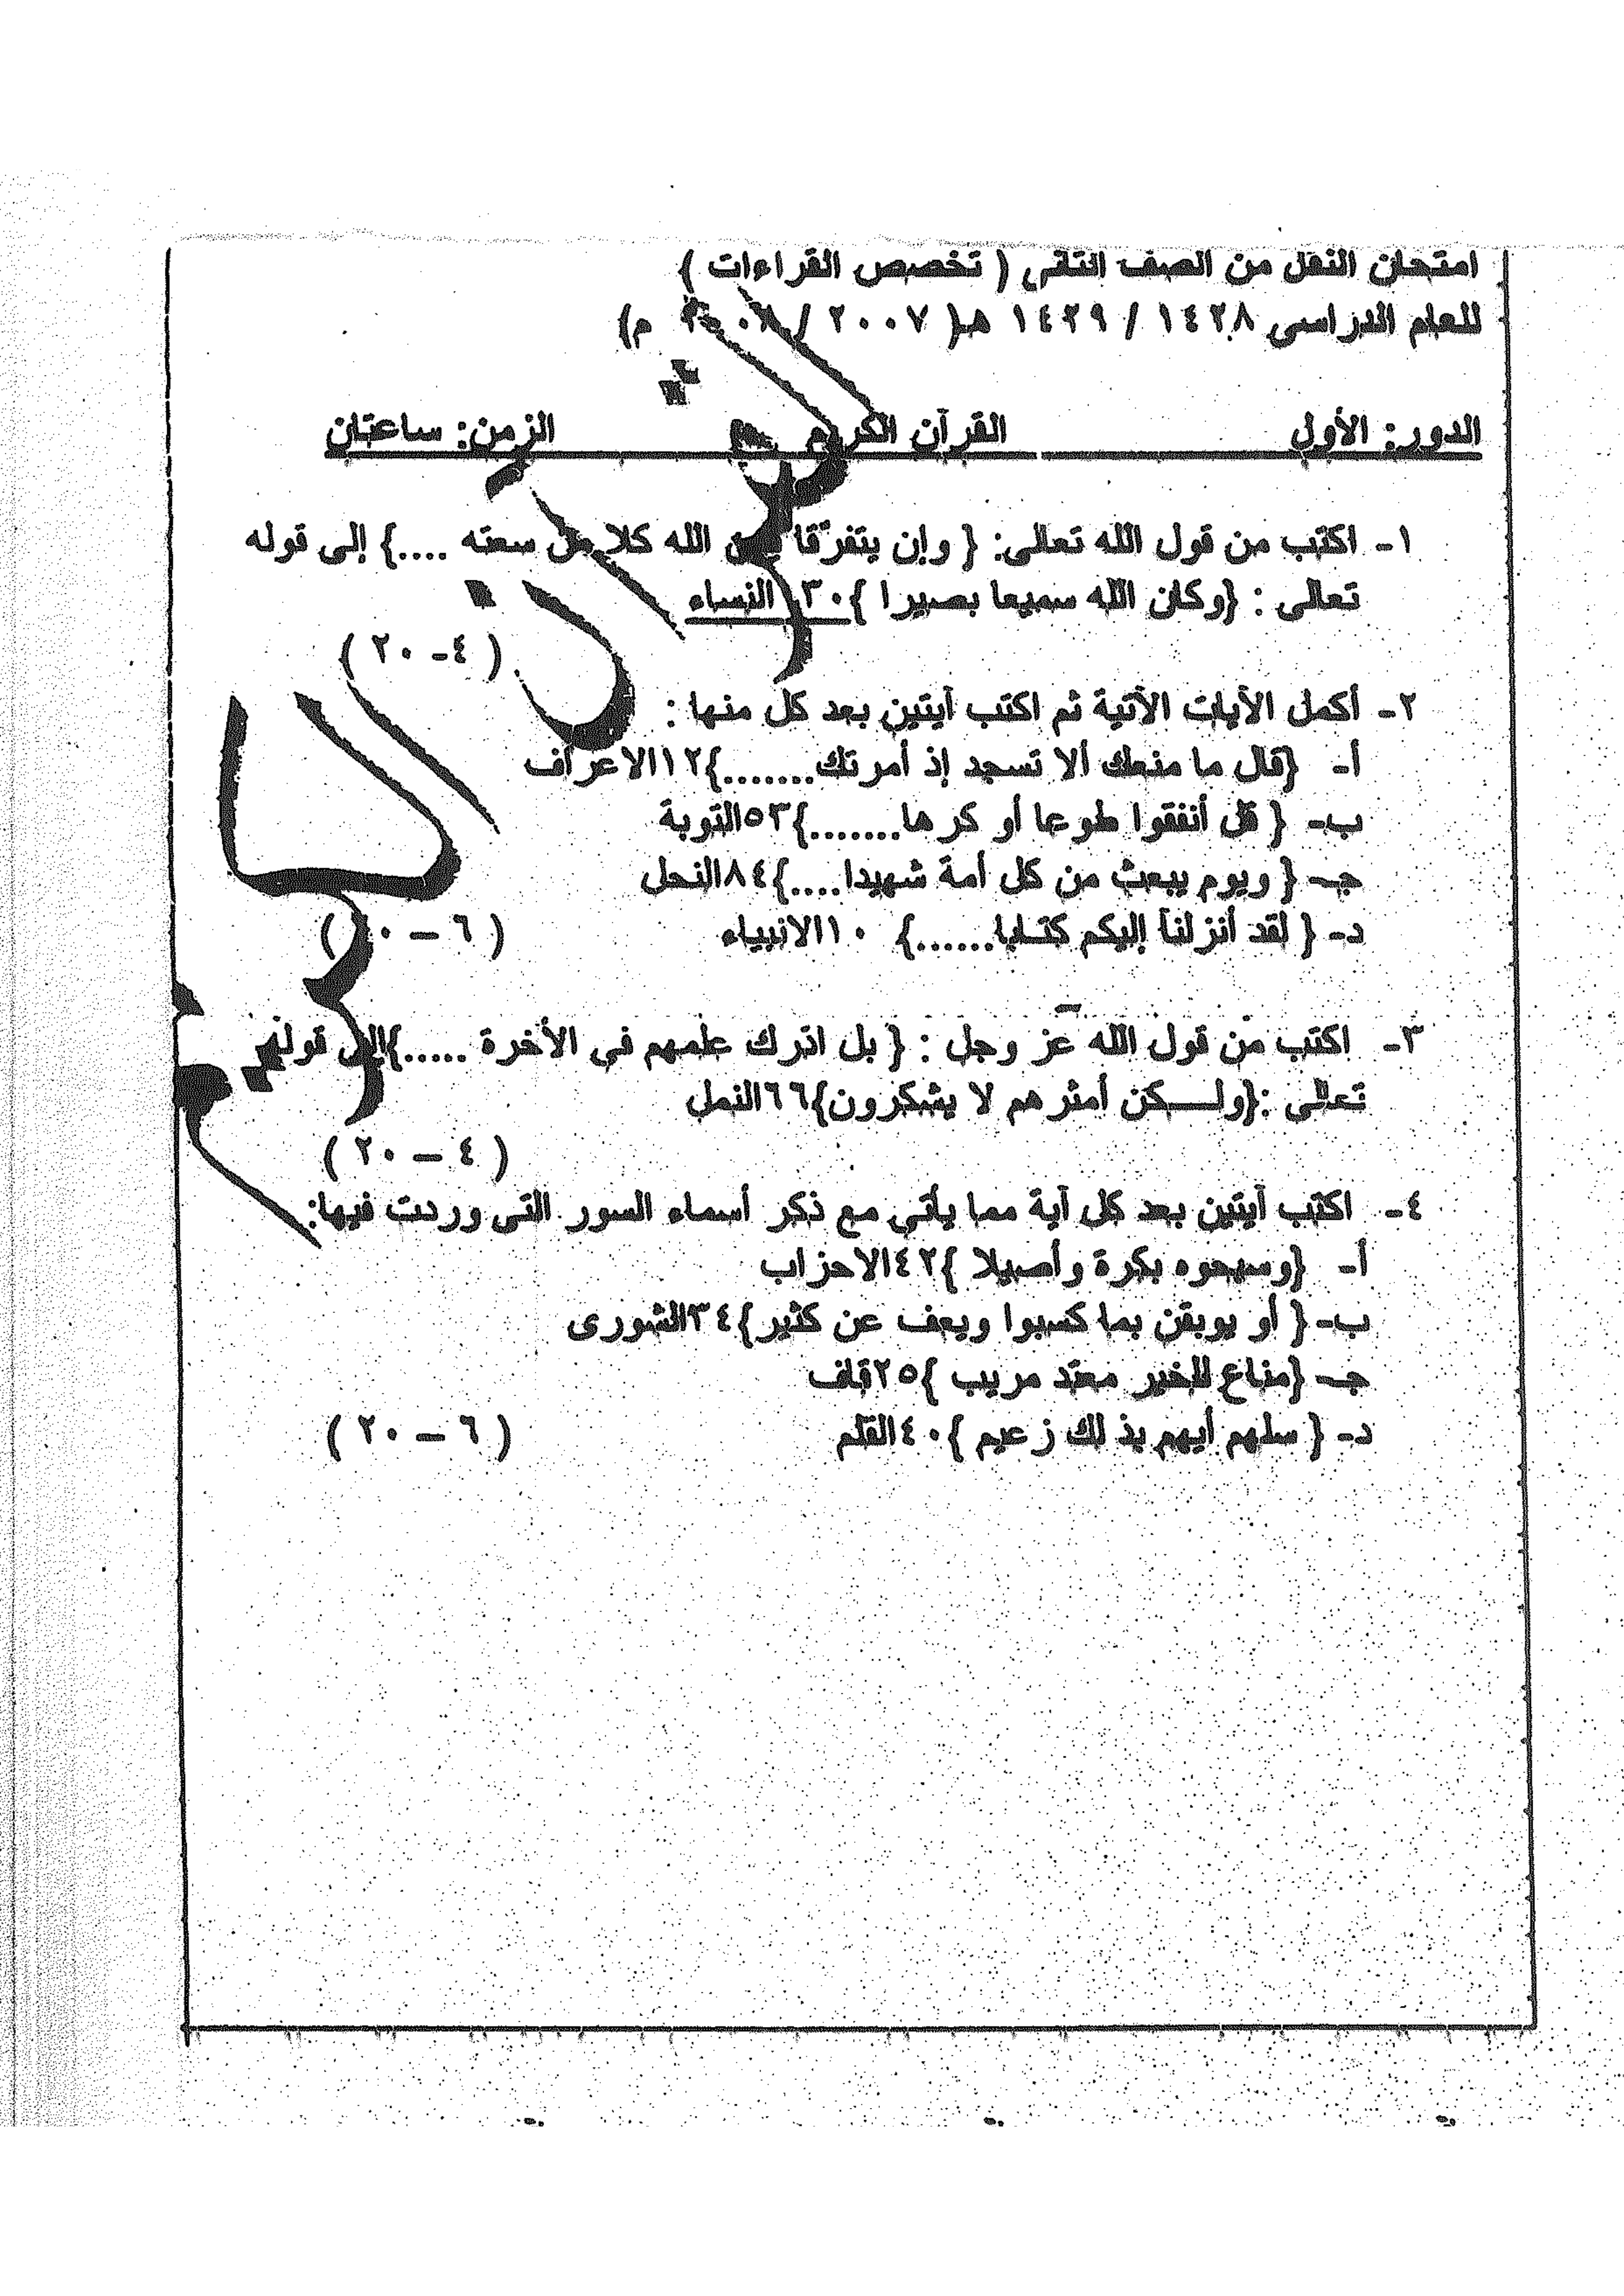 امتحان النقل من الصف الثانى ( تخصص القراءات )
للعام الدراسى ١٤٢٨ / ١٤٢٩ هـ( ٢٠٠٧ / ٢٠٠٨ م)
الدور: الأول القرآن الكريم الزمن: ساعتان
١- اكتب من قول الله تعالى: { وإن يتفرقا يغن الله كلا من سعته ....} إلى قوله
تعالى : {وكان الله سميعا بصيرا }١٣٠ النساء
( ٤- ٢٠ )
٢- أكمل الآيات الآتية ثم اكتب آيتين بعد كل منها :
أ- {قال ما منعك ألا تسجد إذ أمرتك.......}١٢الاعراف
ب- { قل أنفقوا طوعا أو كرها.......}٥٣التوبة
جـ- { ويوم يبعث من كل أمة شهيدا....}٨٤النحل
د- { لقد أنزلنا إليكم كتابا......} ١٠الانبياء ( ٦ – ٢٠ )
٣- اكتب من قول الله عز وجل : { بل ادرك علمهم فى الأخرة .....}إلى قوله
تعالى :{ولـكن أكثرهم لا يشكرون}٦٦النمل
( ٤ – ٢٠ )
٤- اكتب آيتين بعد كل آية مما يأتي مع ذكر أسماء السور التى وردت فيها:
أ- {وسبحوه بكرة وأصيلا }٤٢الاحزاب
ب- { أو يوبقن بما كسبوا ويعف عن كثير}٣٤الشورى
جـ- {مناع للخير معتد مريب }٢٥قاف
د- { سلهم أيهم بذ لك زعيم }٤٠القلم ( ٦ – ٢٠ )